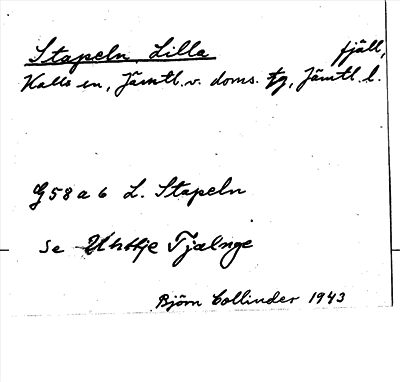 Stapeln, Lilla fjäll,
Kalls sn, Jämtl. v. doms. tg, Jämtl. l.
G58a6 L. Stapeln
Se Uhttje Tjalnge
Björn Collinder 1943